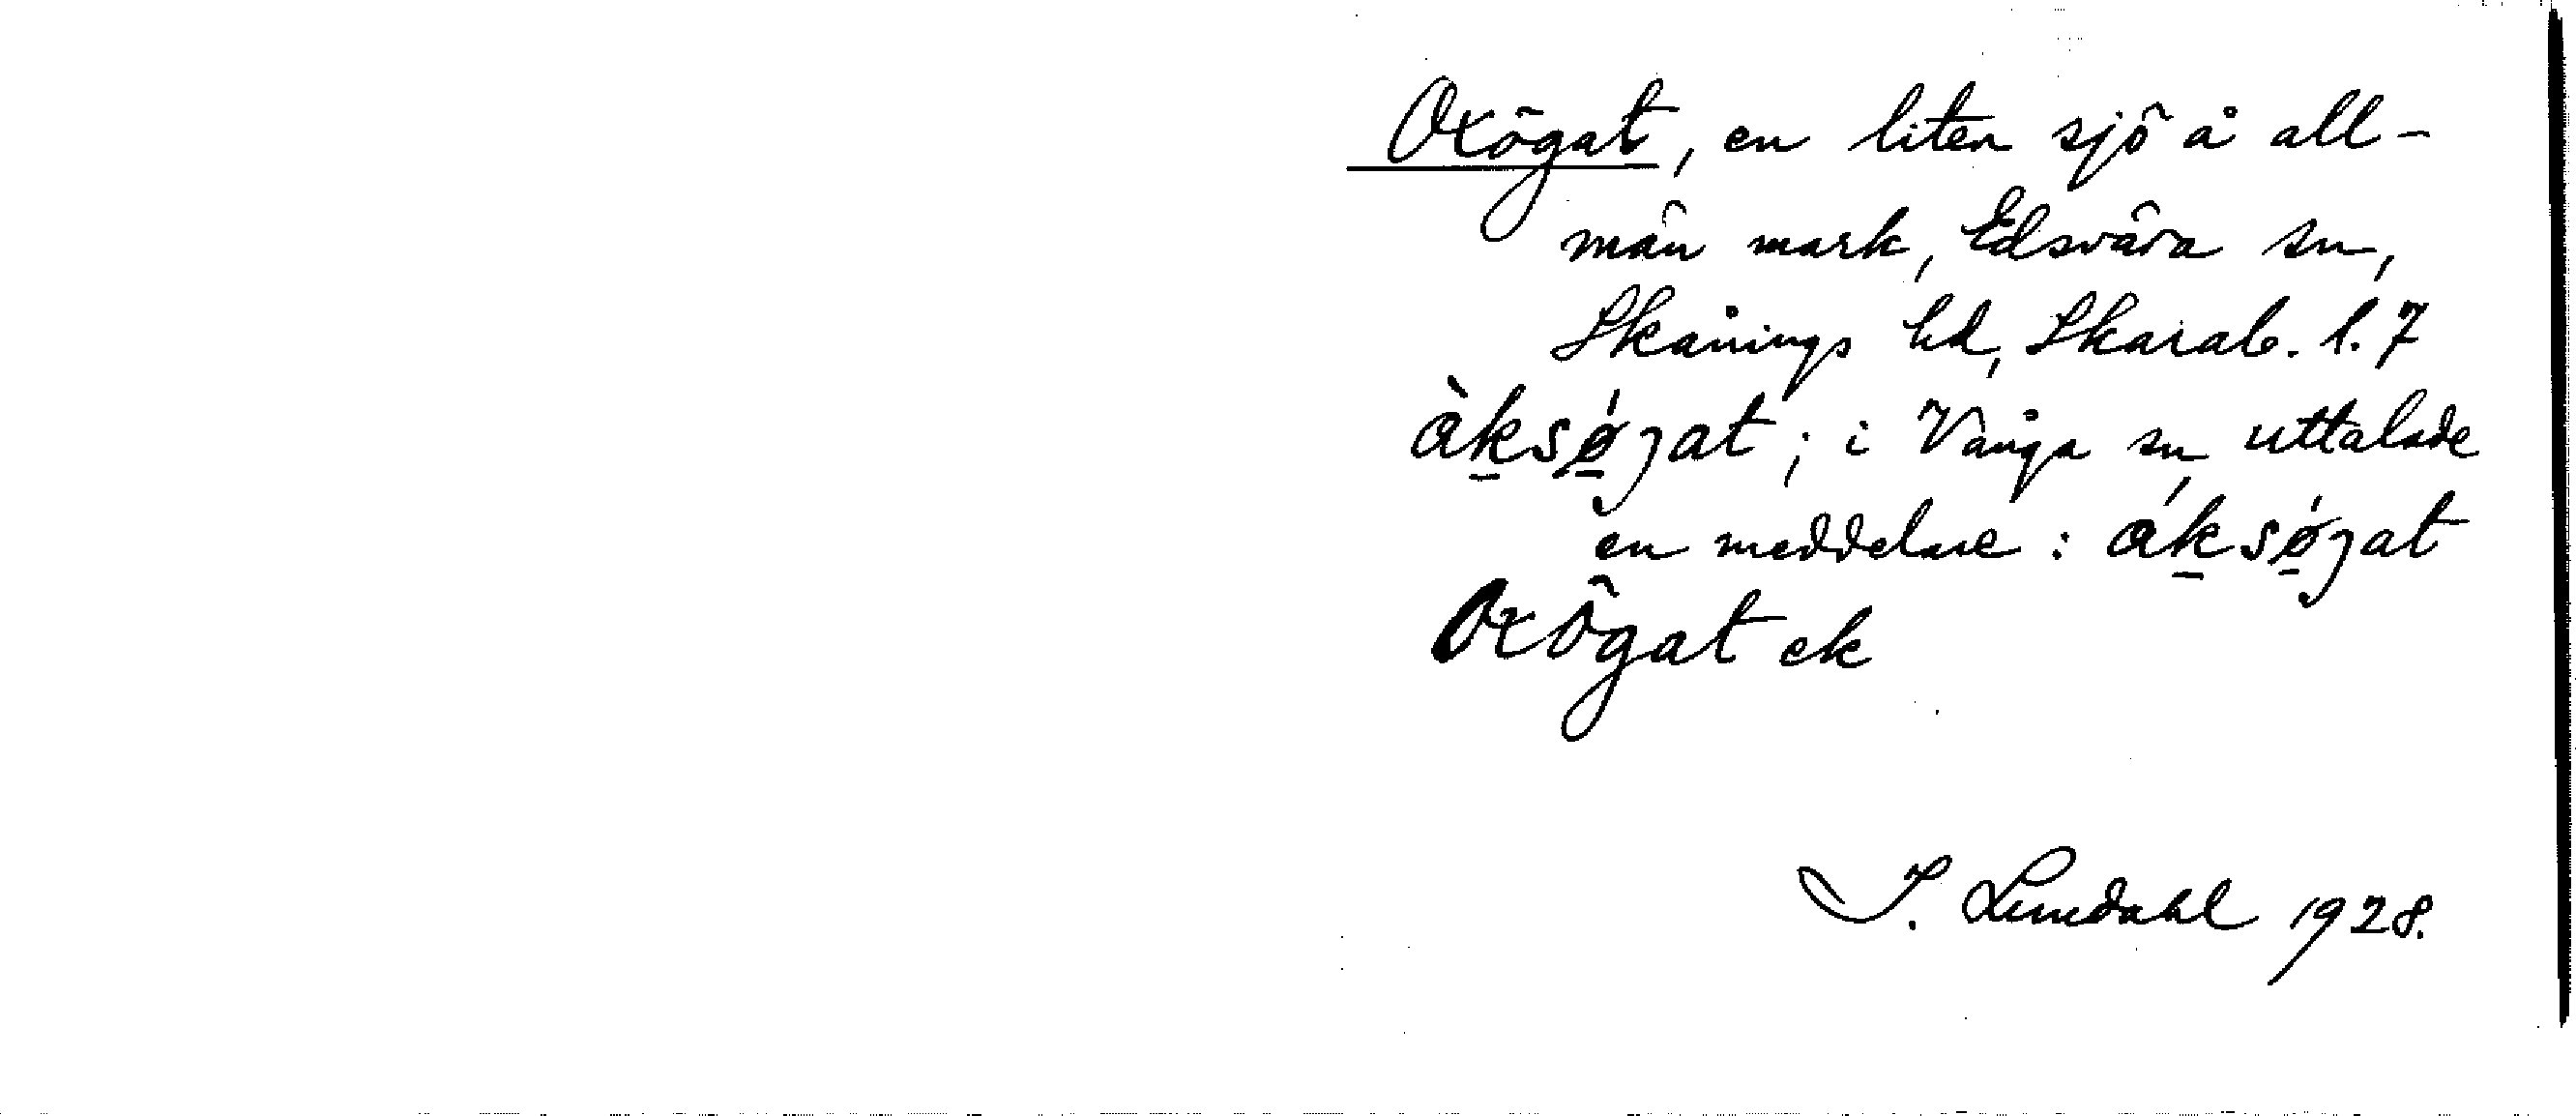 Oxögat, en liten sjö å all-
män mark, Edsvära sn,
Skånings hd, Skarab. l. 7
àk̲sǿ̲jat ; i Vånga sn uttalade
en meddelare : ák̲sǿ̲jat
Oxögat ek
I. Lundahl 1928.